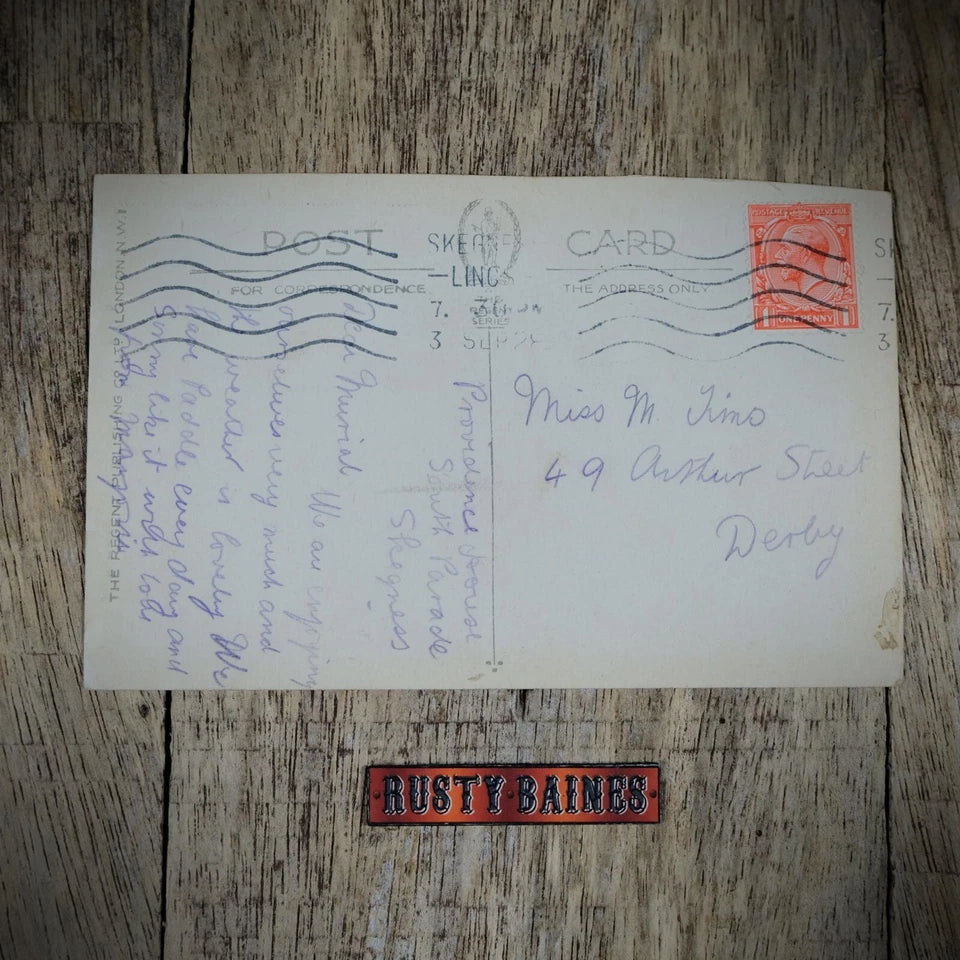 POST CARD
FOR CORRESPONDENCE
THE ADDRESS ONLY
SKEGNE
-LINCS
7. 30
3 SEP
REGENT
SERIES
SK
7.
3
POSTAGE REVENUE
1 ONE PENNY 1
Miss M.
49 Arthur Street
Derby
Providence House
South Parade
Skegness
Dear Muriel We are enjoying
ourselves very much and
the weather is lovely We
have Paddle every day and
like it with
from
THE REGENT PUBLISHING CO LTD, LONDON N.W.1
RUSTY BAINES